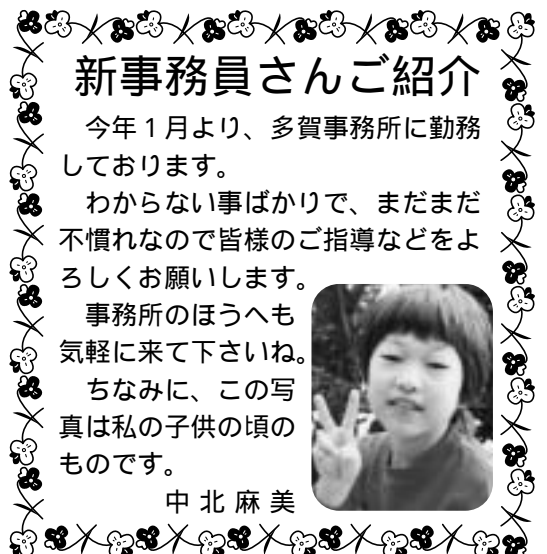 新事務員さんご紹介
　今年１月より、多賀事務所に勤務
しております。
　わからない事ばかりで、まだまだ
不慣れなので皆様のご指導などをよ
ろしくお願いします。
　事務所のほうへも
気軽に来て下さいね。
　ちなみに、この写
真は私の子供の頃の
ものです。
中 北 麻 美